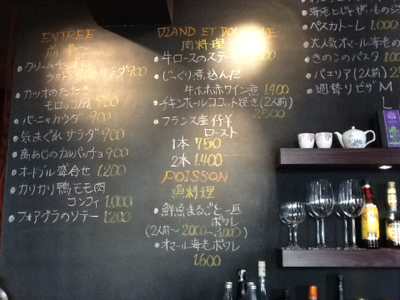 ENTREE
前菜
・クリームチーズ
サラダ 900
・カツオのたたき
モロッコ風 900
・バーニャカウダ 900
・気まぐれサラダ 900
・島あじのカルパッチョ 900
・オードブル盛合せ 1,200
・カリカリ鴨モモ肉
コンフィ 1,000
・フォアグラのソテー 1,200
VIAND ET
肉料理
・牛ロースのステーキ
・じっくり煮込んだ
牛ホホ赤ワイン煮 1,400
・チキンホールココット焼き (2人前)
2,500
・フランス産仔羊
ロースト
1本 750
2本 1,400
POISSON
魚料理
・鮮魚まるごと一匹
ポワレ
(2人前〜 2,000〜3,000)
・オマール海老ポワレ
1,600
ペスカトーレ 1,000
・大人気オマール海老の
・きのこのパスタ
・パエリア (2人前)
・週替りピザ M
L